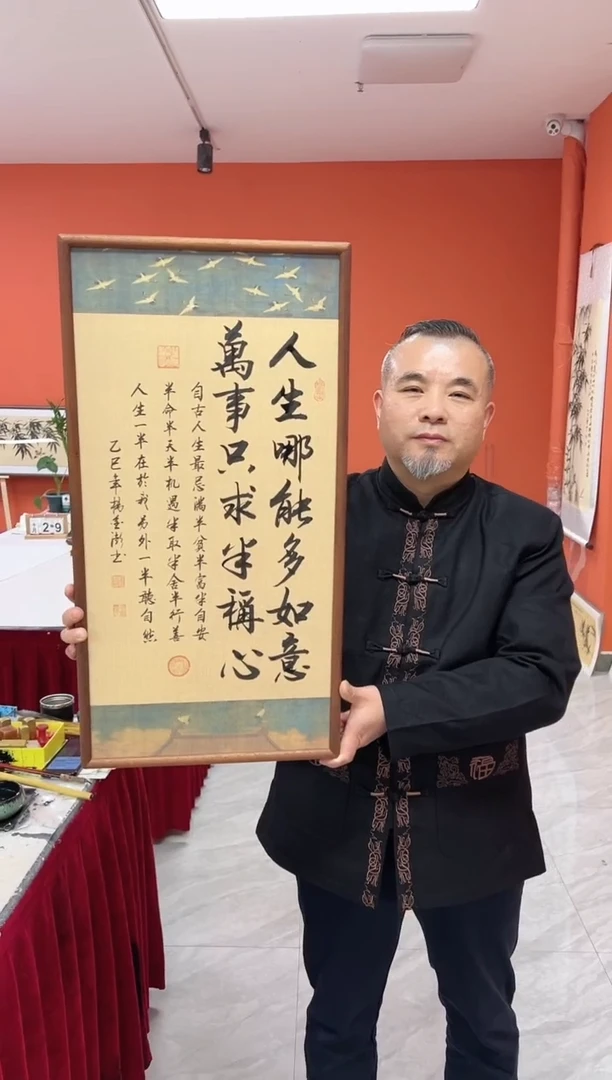 人生哪能多如意
萬事只求半稱心
自古人生最忌满半貧半富半自安
半命半天半机遇半取半舍半行善
人生一半在於我另外一半聽自然
乙巳年楊
书
福
2 9